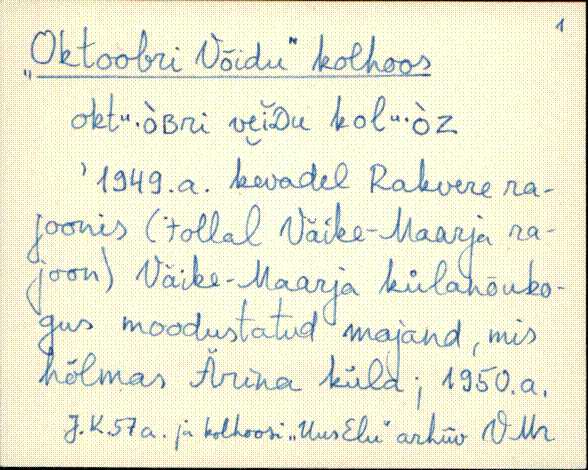 1
„Oktoobri Võidu" kolhoos
'1949.a. kevadel Rakvere ra-
joonis (tollal Väike-Maarja ra-
joon) Väike-Maarja külanõuko-
gus moodustatud majand, mis
hõlmas Ärina küla; 1950.a.
J.K. 57 a. ja kolhoosi „Uus Elu" arhiiv VMr